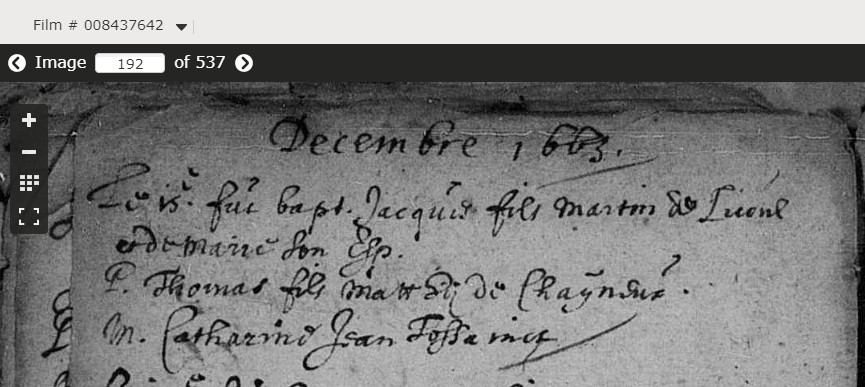 Film # 008437642
Image 192 of 537
Decembre 1663.
Le 15e. fut bapt. Jacques fils Martin de Lieoné
et de marie son Esp.
P. Thomas fils Matthy de Chayneux.
M. Catharine Jean Tossainct